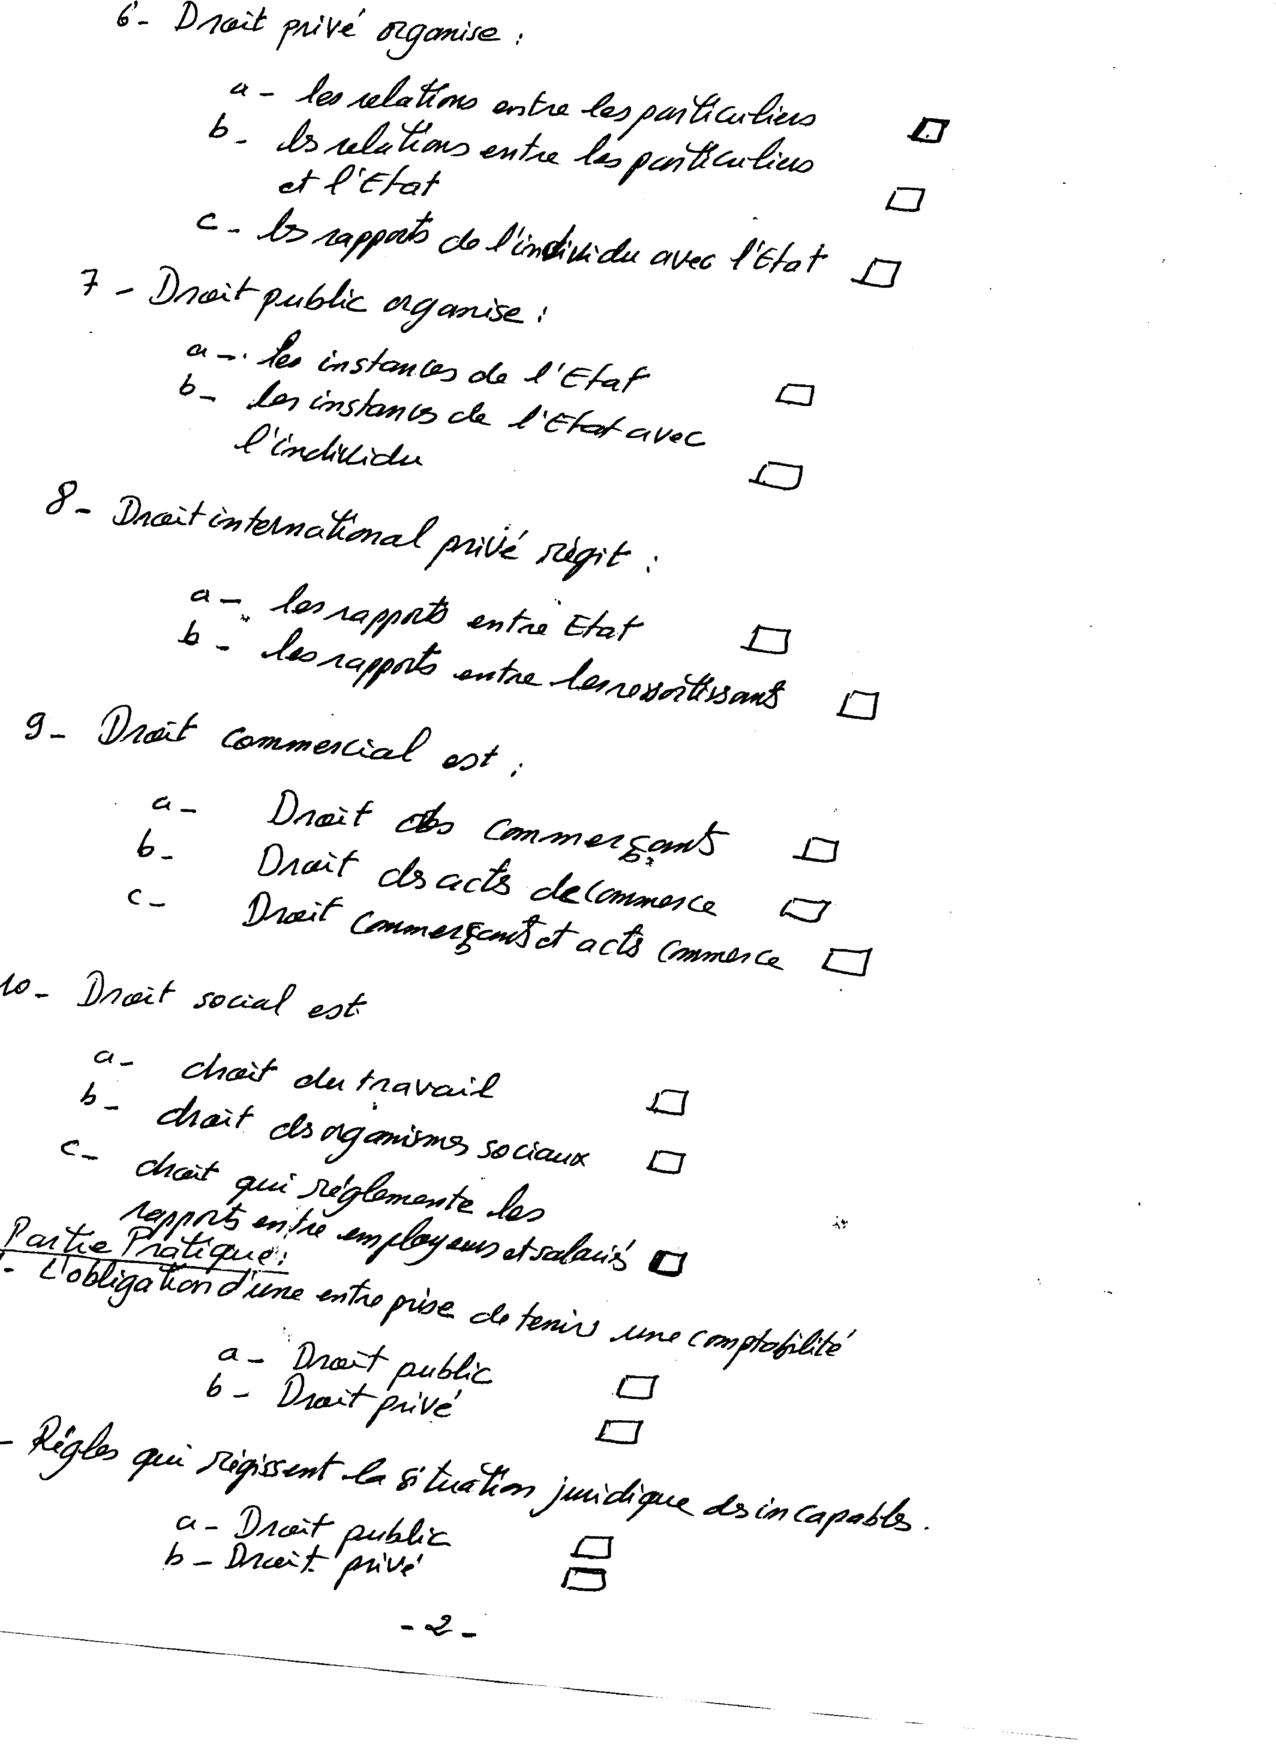 6- Droit privé organise :
a- les relations entre les particuliers
b- les relations entre les particuliers
et l'Etat
c- les rapports de l'individu avec l'Etat
7- Droit public organise :
a- les instances de l'Etat
b- les instances de l'Etat avec
l'individu
8- Droit international privé régit :
a- les rapports entre Etat
b- les rapports entre les ressortissants
9- Droit commercial est :
a- Droit des commerçants
b- Droit des acts de commerce
c- Droit commerçants et acts commerce
10- Droit social est
a- droit du travail
b- droit des organismes sociaux
c- droit qui réglemente les
rapports entre employeurs et salariés
Partie Pratique :
- L'obligation d'une entreprise de tenir une comptabilité
a- Droit public
b- Droit privé
- Régles qui régissent la situation juridique des incapables.
a- Droit public
b- Droit privé
- 2 -